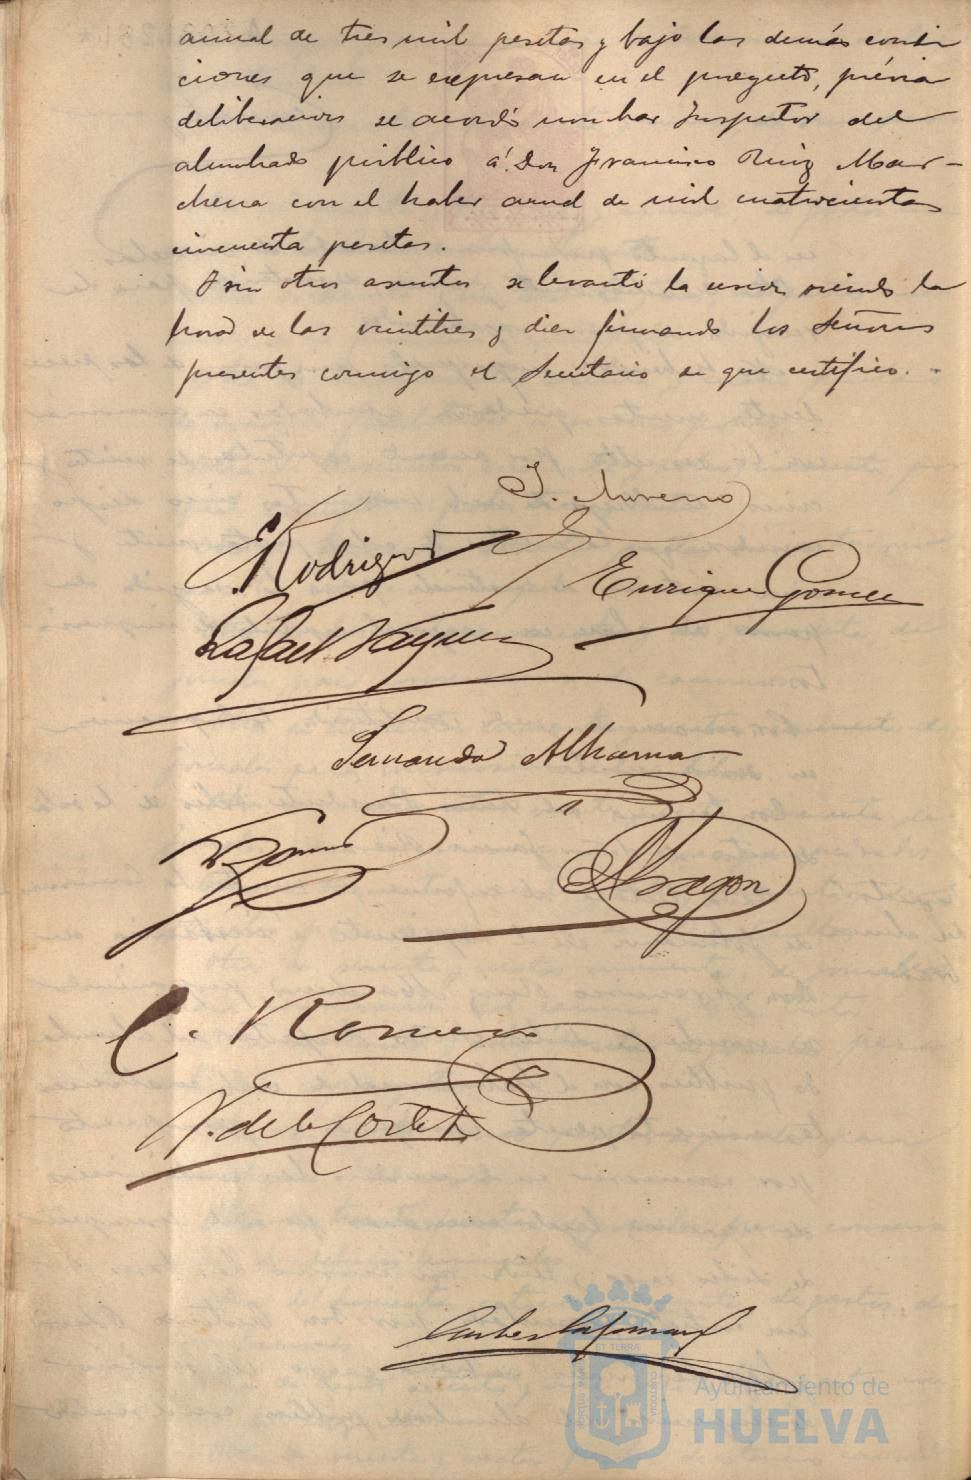 anual de tres mil pesetas y bajo las demás condi
ciones que se expresan en el proyecto, prévia
deliberacion se acordó nombrar Inspector del
alumbrado público á Don Francisco Ruiz Mar-
chena con el haber anual de mil cuatrocientas
cincuenta pesetas.
Y sin otros asuntos se levantó la sesion siendo la
hora de las veintitres y diez firmando los Señores
presentes conmigo el Secretario de que certifico.
J. Moreno
E. Rodriguez
Enrique Gomez
Rafael Vazquez
Fernando Alhama
Aragon
C. Romero
N. de la Corte
Ayuntamiento de
HUELVA